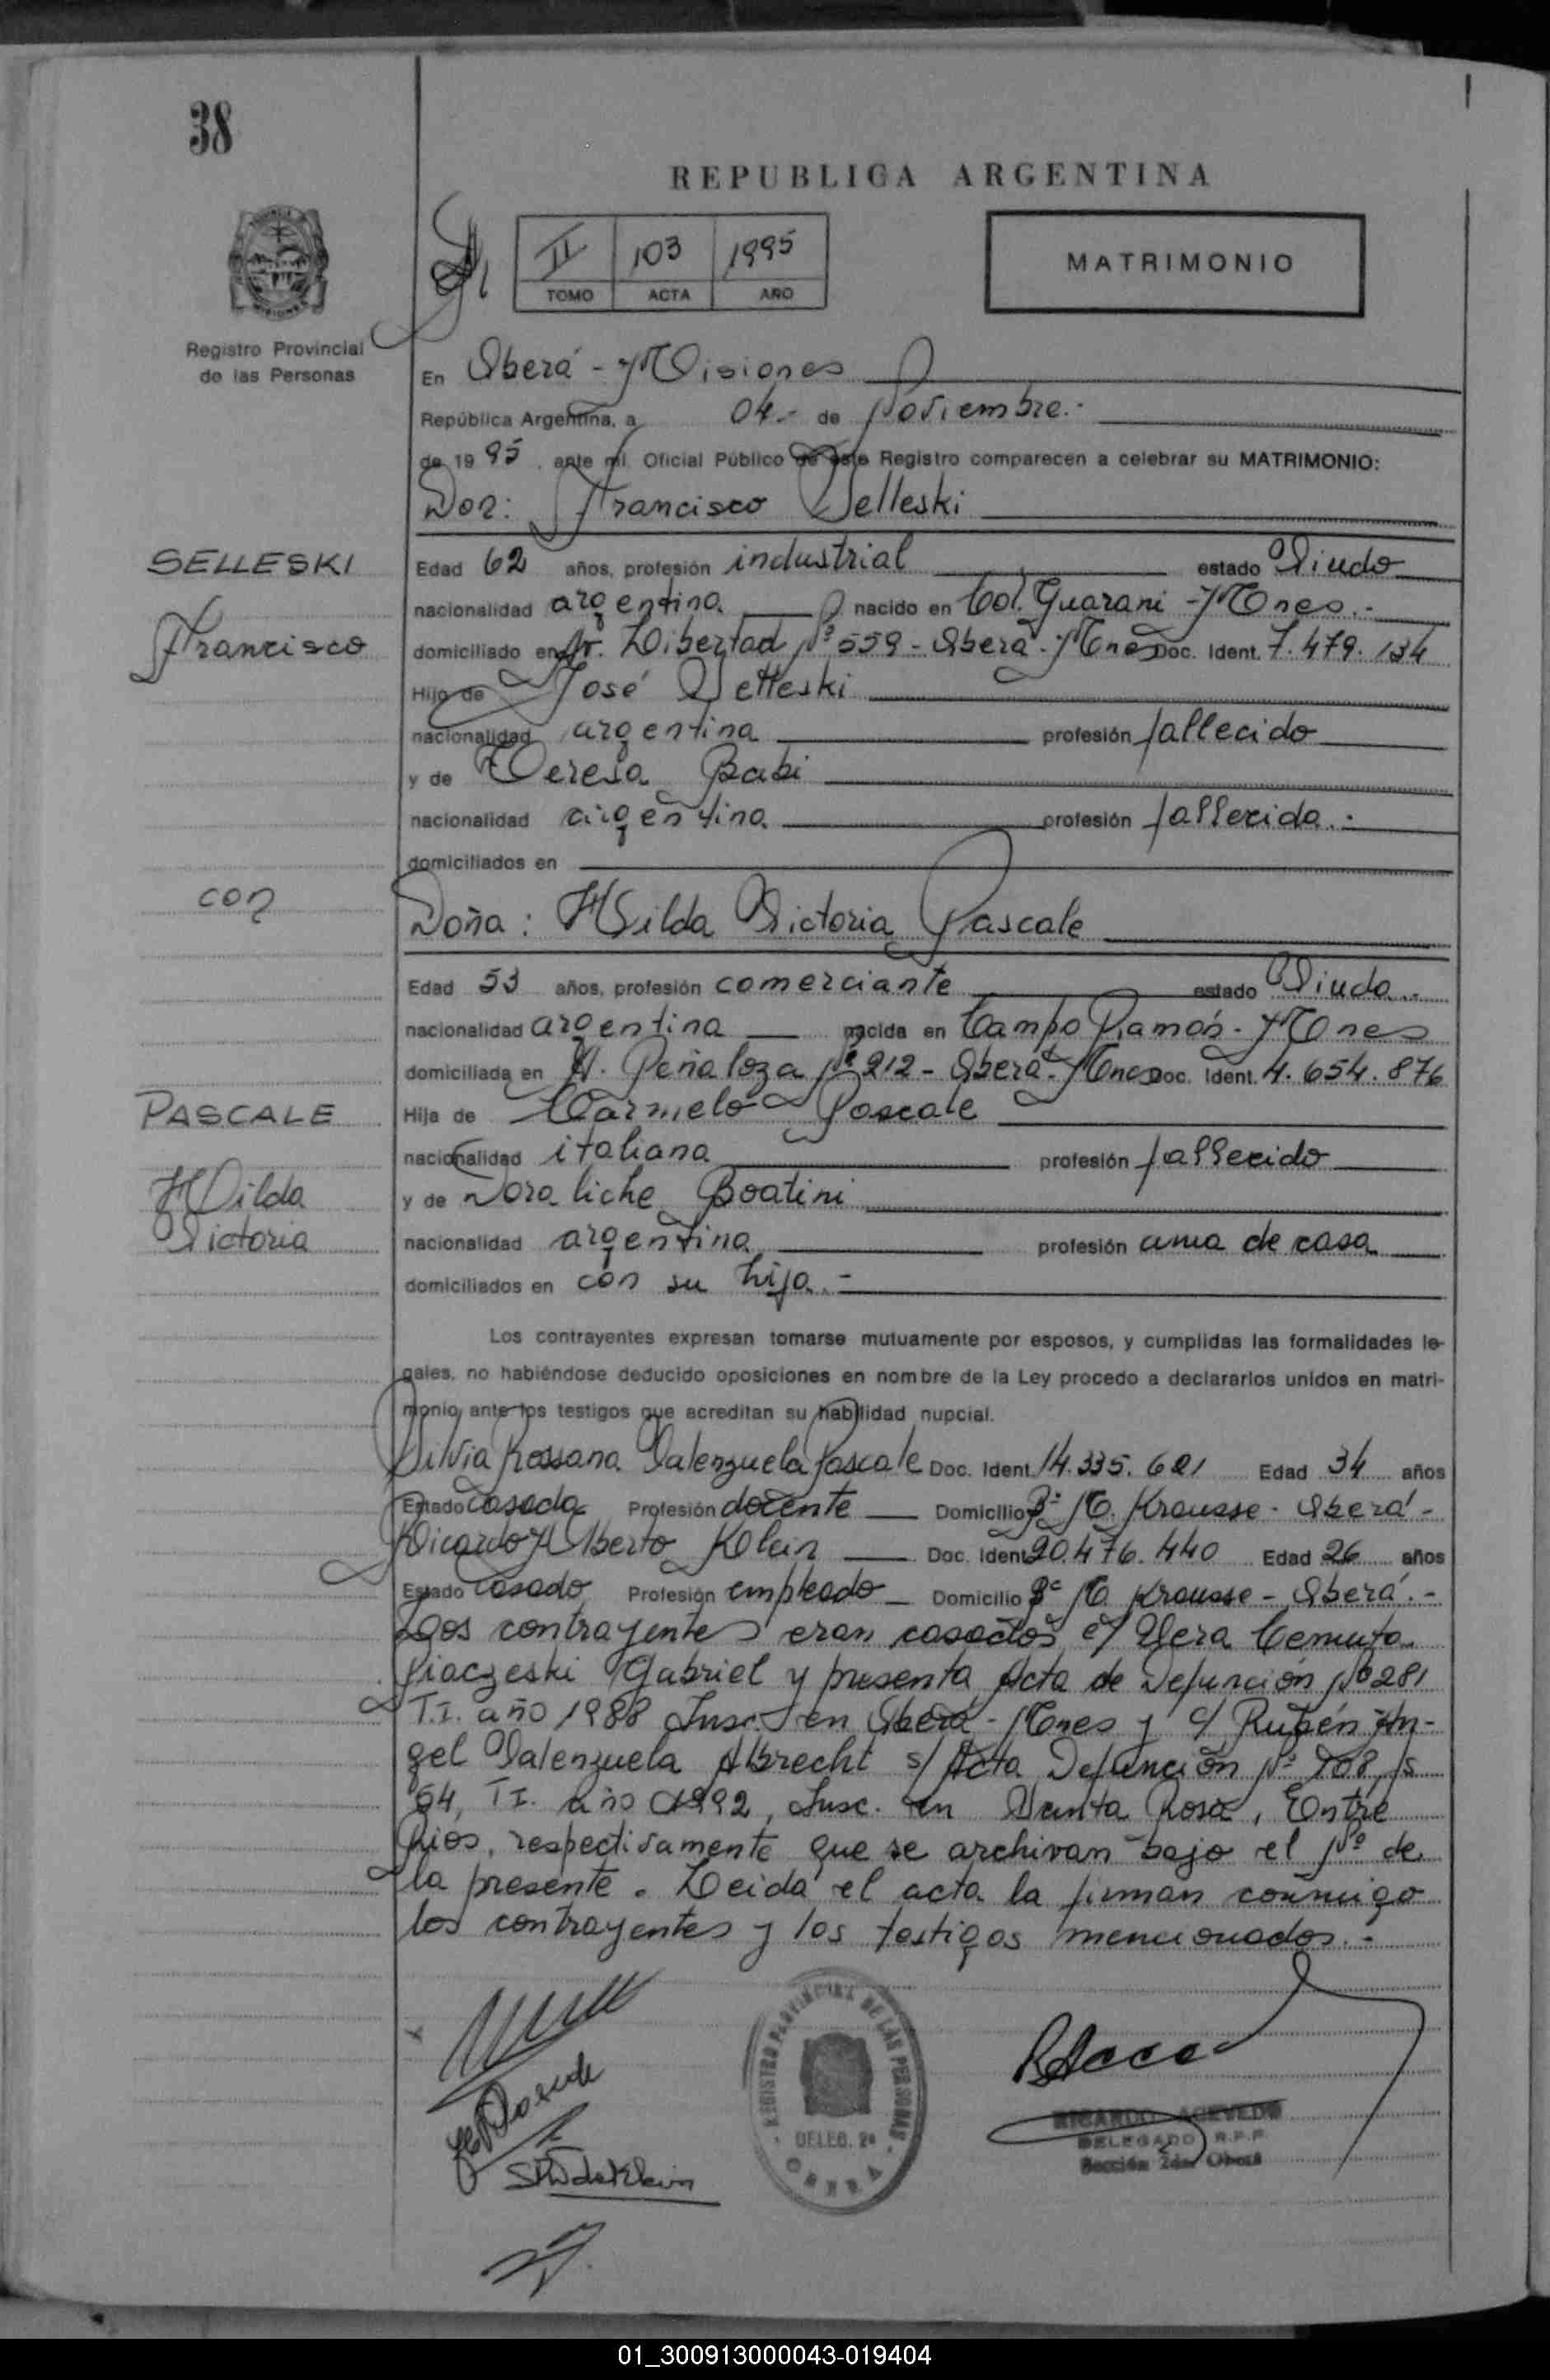 38
REPUBLICA ARGENTINA
II 103 1995
TOMO ACTA AÑO
MATRIMONIO
Registro Provincial
de las Personas
En Oberá - Misiones
República Argentina, a 04.- de Noviembre.-
de 19 95, ante mí, Oficial Público de este Registro comparecen a celebrar su MATRIMONIO:
Don: Francisco Selleski
SELLESKI
Edad 62 años, profesión industrial estado Viudo
nacionalidad argentina nacido en Col. Guarani - Mnes.-
Francisco
domiciliado en Av. Libertad Nº 559 - Oberá - Mnes Doc. Ident. 7.479.134
Hijo de José Selleski
nacionalidad argentina profesión fallecido
y de Teresa Babi
nacionalidad argentina profesión fallecida.-
domiciliados en
con
Doña: Hilda Victoria Pascale
Edad 53 años, profesión comerciante estado Viuda.-
nacionalidad argentina nacida en Campo Ramón - Mnes
domiciliada en Peñaloza Nº 212 - Oberá - Mnes Doc. Ident. 4.654.876
PASCALE
Hija de Carmelo Pascale
nacionalidad italiana profesión fallecido
Hilda
y de Doraliche Boatini
Victoria
nacionalidad argentina profesión ama de casa
domiciliados en con su hija.-
Los contrayentes expresan tomarse mutuamente por esposos, y cumplidas las formalidades le-
gales, no habiéndose deducido oposiciones en nombre de la Ley procedo a declararlos unidos en matri-
monio ante los testigos que acreditan su habilidad nupcial.
Silvia Rossana Valenzuela Pascale Doc. Ident. 14.335.621 Edad 34 años
Estado Casada Profesión docente Domicilio Bº Krausse - Oberá -
Ricardo Alberto Klein Doc. Ident. 20.476.440 Edad 26 años
Estado Casado Profesión empleado Domicilio Bº Krausse - Oberá.-
Los contrayentes eran casados c/ Vera
Gabriel y presenta Acta de Defunción Nº 281
T.I. año 1988 Insc. en Oberá - Mnes y c/ Rubén An-
gel Valenzuela Albrecht s/ Acta Defunción Nº 108, fs
54, TI. año 1992, Insc. en Santa Rosa, Entre
Rios, respectivamente que se archivan bajo el Nº de
la presente. Leida el acta la firman conmigo
los contrayentes y los testigos mencionados.-
REGISTRO PROVINCIAL DE LAS PERSONAS
DELEG. 2ª
OBERA
RICARDO ACEVEDO
DELEGADO R.P.P.
Sección 2da. Oberá
01_300913000043-019404